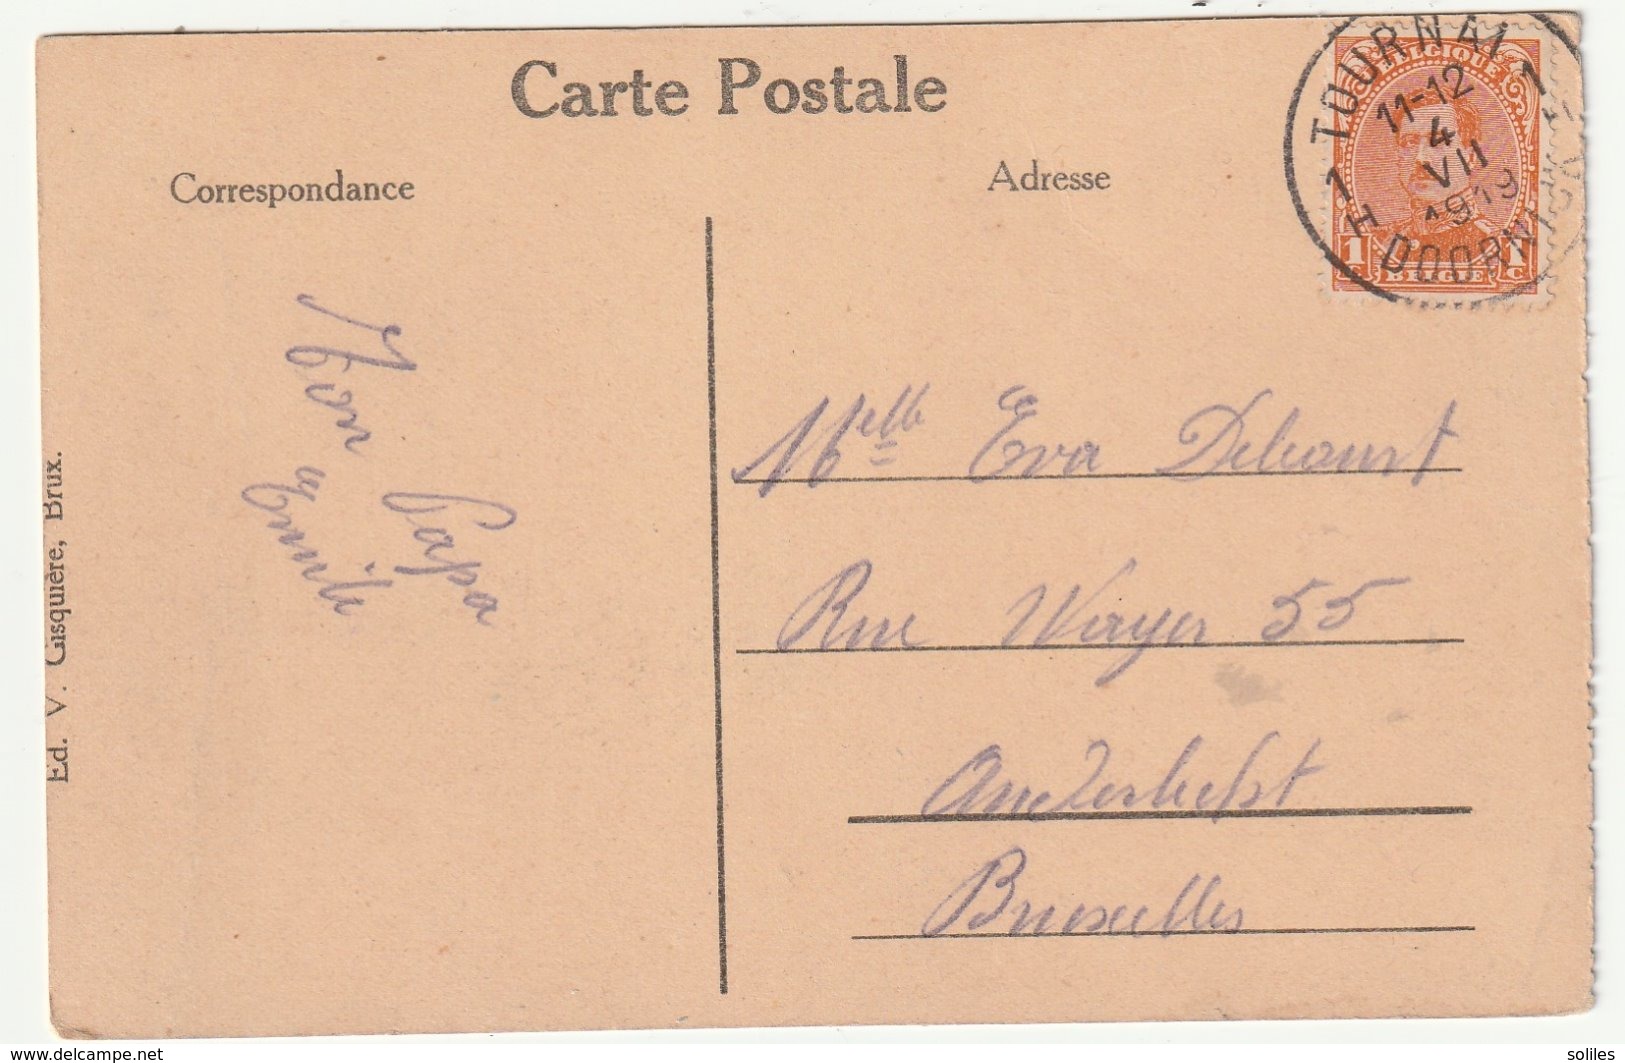 Carte Postale
Correspondance
Adresse
TOURNAI 1
11-12
4
VII
1919
1 H DOORNI
BELGIQUE
1 1
C C
BELGIE
Ton Papa
Emile
Melle Eva Debourt
Rue Wayer 55
Anderlecht
Bruxelles
Ed. V. Gisquière, Brux.
www.delcampe.net
soliles